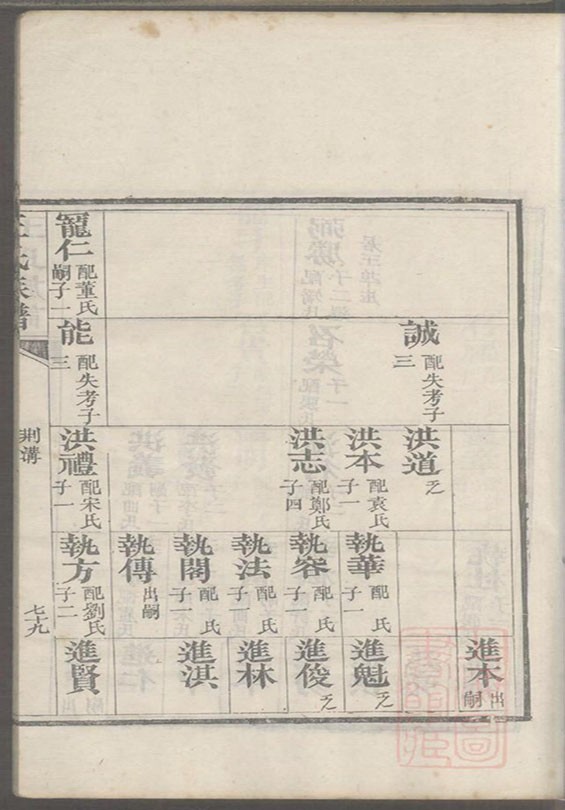 誠 配失考子三
洪道 乏
洪本 配袁氏子一
洪志 配鄭氏子四
執華 配 氏子一
執容 配 氏子一
執法 配 氏子一
執閣 配 氏子一
執傳 出嗣
進本 出嗣
進魁 乏
進俊 乏
進林
進淇
寵仁 配董氏嗣子一
能 配失考子三
洪禮 配宋氏子一
執方 配劉氏子二
進賢
王氏族譜
荆溝
七十九